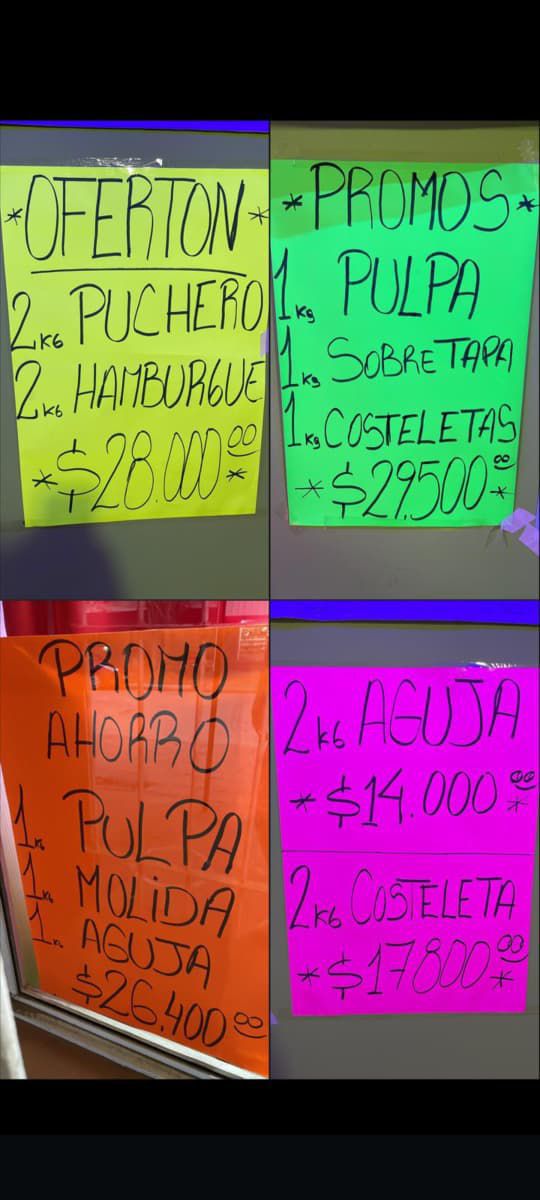 *OFERTON*
2KG PUCHERO
2KG HAMBURGUE
*$28.000⁰⁰*
*PROMOS*
1Kg PULPA
1Kg SOBRETAPA
1Kg COSTELETAS
*$29.500⁰⁰*
PROMO
AHORRO
1KG PULPA
1KG MOLiDA
1KG AGUJA
$26.400⁰⁰
2KG AGUJA
*$14.000⁰⁰*
2KG COSTELETA
*$17800⁰⁰*